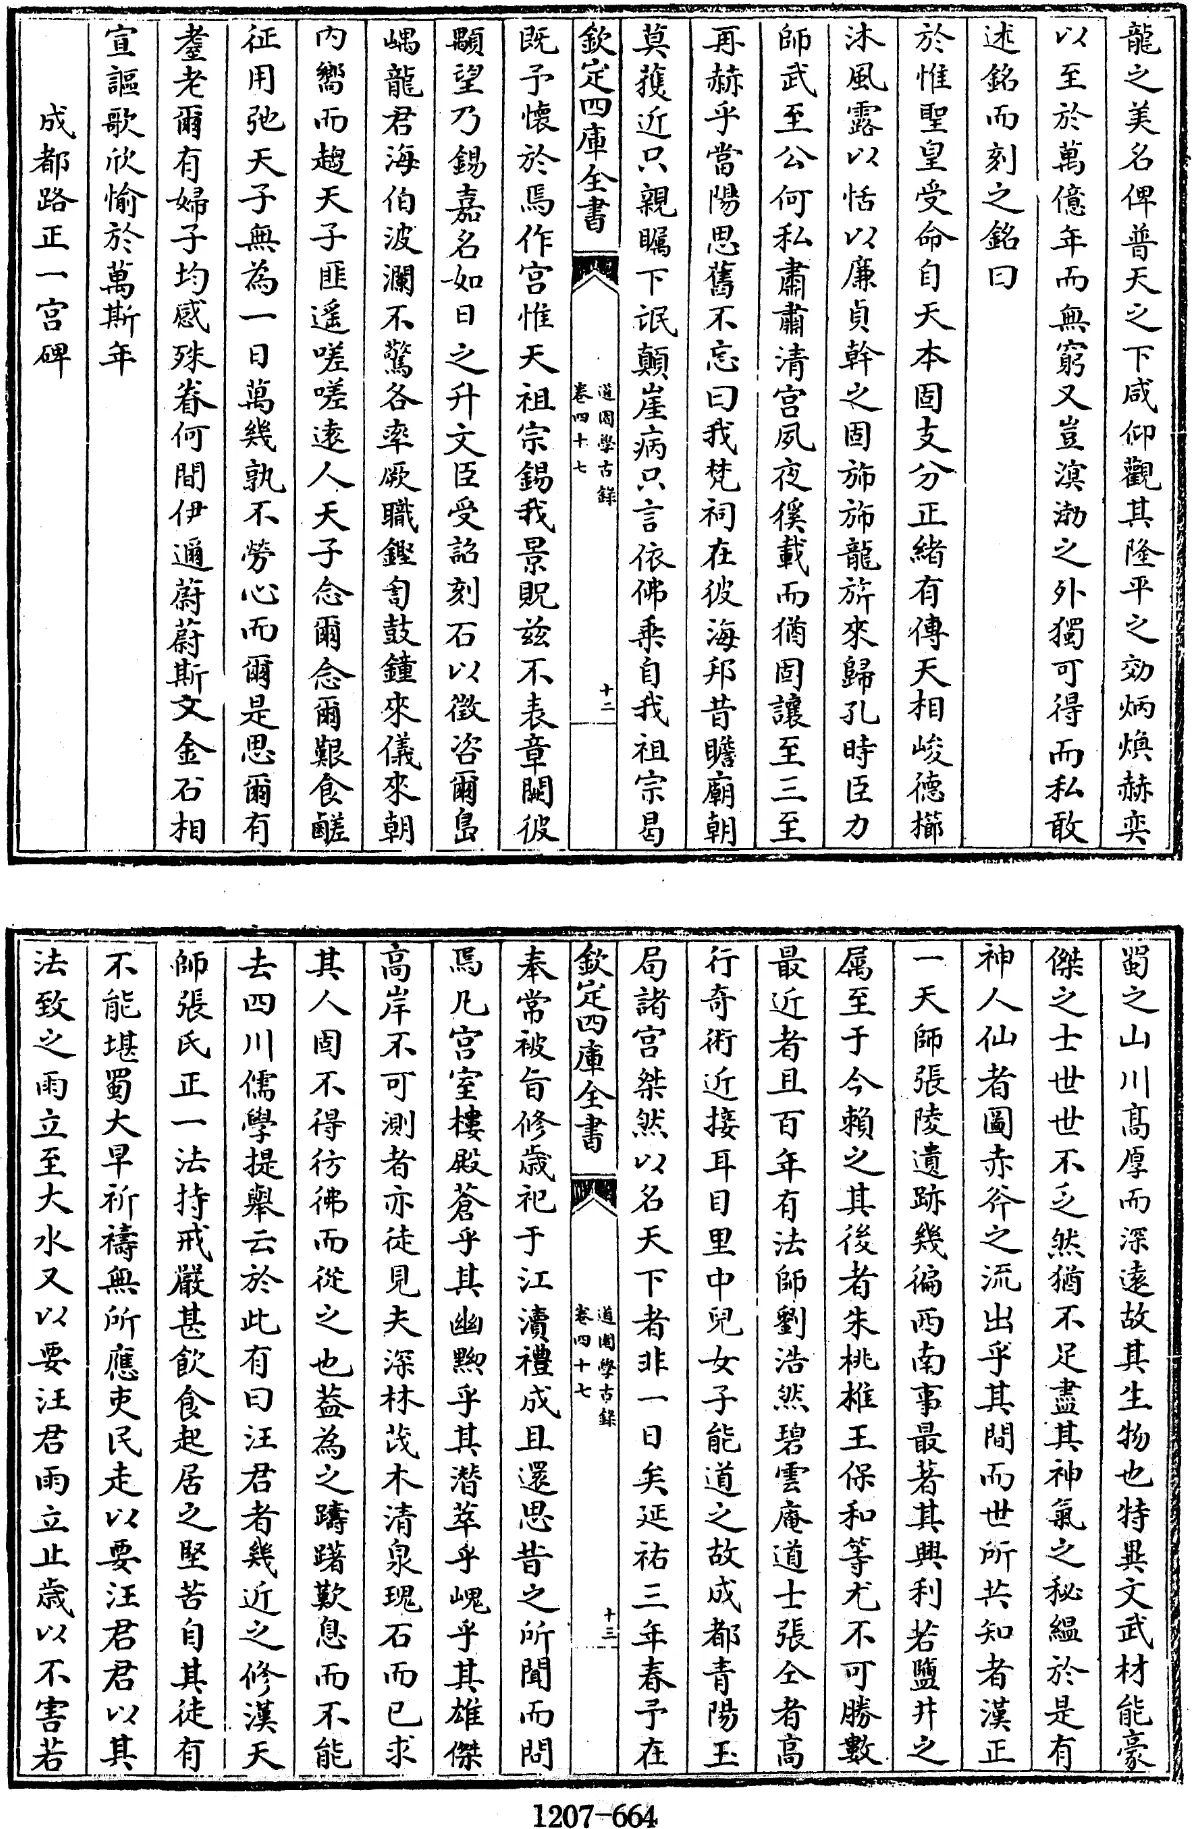 龍之美名俾普天之下咸仰觀其隆平之効炳煥赫奕
以至於萬億年而無窮又豈溟渤之外獨可得而私敢
述銘而刻之銘曰
於惟聖皇受命自天本固支分正緒有傳天相峻德櫛
沐風露以恬以廉貞幹之固斾斾龍旂來歸孔時臣力
師武至公何私肅肅清宫夙夜徯載而猶固讓至三至
再赫乎當陽思舊不忘曰我梵祠在彼海邦昔瞻廟朝
莫獲近只親矚下氓顛崖病只言依佛乗自我祖宗曷
欽定四庫全書
道園學古錄
卷四十七
十二
既予懷於焉作宫惟天祖宗錫我景貺兹不表章闕彼
顯望乃錫嘉名如日之升文臣受詔刻石以徵咨爾島
嵎龍君海伯波瀾不驚各率厥職鏗訇鼓鐘來儀來朝
内嚮而趨天子匪遥嗟嗟逺人天子念爾念爾艱食鹺
征用弛天子無為一日萬幾孰不勞心而爾是思爾有
耊老爾有婦子均感殊眷何間伊邇蔚蔚斯文金石相
宣謳歌欣愉於萬斯年
成都路正一宫碑
蜀之山川髙厚而深逺故其生物也特異文武材能豪
傑之士世世不乏然猶不足盡其神氣之秘緼於是有
神人仙者圖赤斧之流出乎其間而世所共知者漢正
一天師張陵遺跡幾徧西南事最著其興利若鹽井之
属至于今賴之其後者朱桃椎王保和等尤不可勝數
最近者且百年有法師劉浩然碧雲庵道士張仝者髙
行奇術近接耳目里中兒女子能道之故成都青陽玉
局諸宫桀然以名天下者非一日矣延祐三年春予在
欽定四庫全書
道園學古錄
卷四十七
十三
奉常被旨修歲祀于江瀆禮成且還思昔之所聞而問
焉凡宫室樓殿蒼乎其幽黝乎其潛萃乎嵬乎其雄傑
高岸不可測者亦徒見夫深林茂木清泉瑰石而已求
其人固不得彷彿而從之也葢為之躊躇歎息而不能
去四川儒學提舉云於此有曰汪君者幾近之修漢天
師張氏正一法持戒嚴甚飲食起居之堅苦自其徒有
不能堪蜀大旱祈禱無所應吏民走以要汪君君以其
法致之雨立至大水又以要汪君雨立止歲以不害若
1207-664